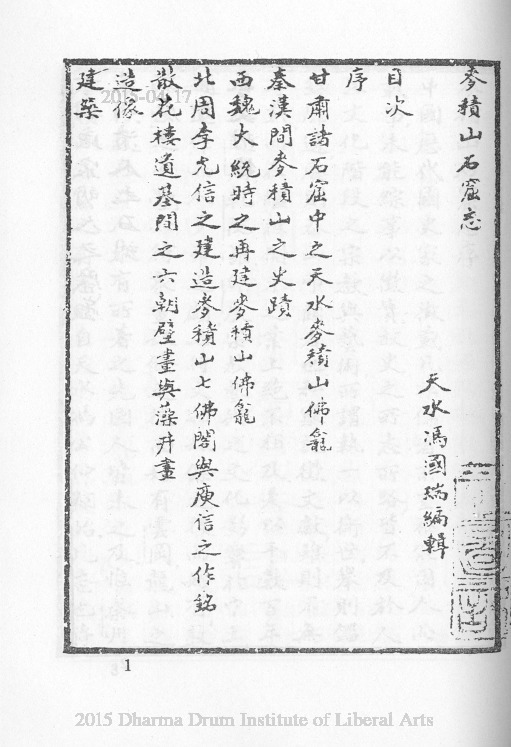 麥積山石窟志
天水馮國瑞編輯
目次
序
甘肅諸石窟中之天水麥積山佛龕
秦漢間麥積山之史蹟
西魏大統時之再建麥積山佛龕
北周李允信之建造麥積山七佛閣與庾信之作銘
散花樓道基間之六朝壁畫與藻井畫
造像
建築
2015-04-17
1
2015 Dharma Drum Institute of Liberal Arts